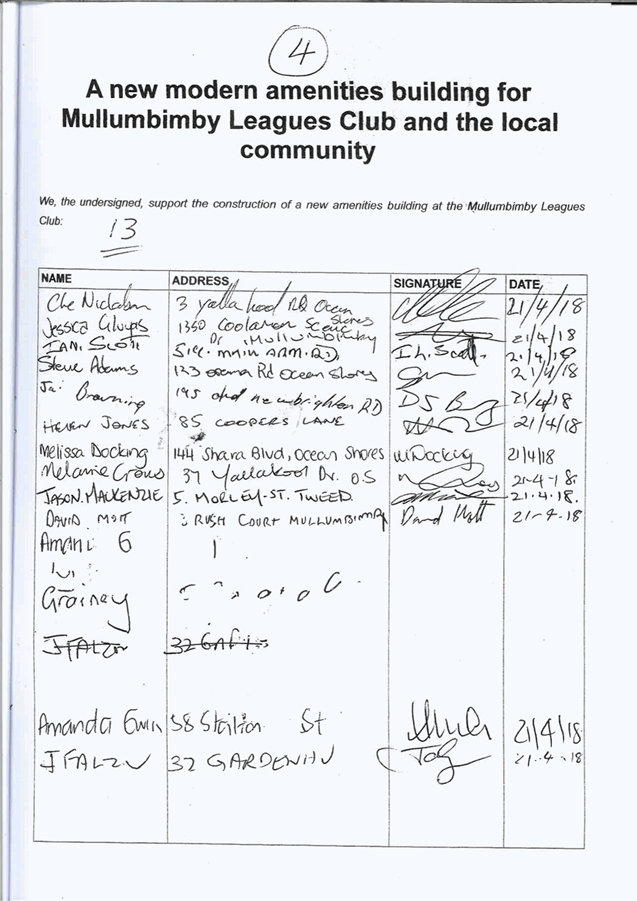 4
A new modern amenities building for
Mullumbimby Leagues Club and the local
community
We, the undersigned, support the construction of a new amenities building at the Mullumbimby Leagues
Club:
13
NAME ADDRESS SIGNATURE DATE
Che 3 Rd Ocean Shores 21/4/18
Jessica 1350 Coolamon Scenic Dr, Mullumbimby 21/4/18
IAN. SCOTT MAIN ARM. RD, I.L. Scott. 21/4/18
Steve Adams Rd Ocean Shores 21/4/18
Jai Browning 195 old newbrighton RD 21/4/18
HELEN JONES 85 COOPERS LANE 21/4/18
Melissa Docking 144 Shara Blvd, Ocean Shores M Docking 21/4/18
Melanie 37 Yallakool Dr. O.S 21-4-18.
JASON. MACKENZIE 5. MORLEY-ST. TWEED. 21.4.18.
DAVID MOTT RUSH COURT MULLUMBIMBY David Mott 21-4-18
Amani G
J FALZON 32
Amanda 58 Station St 21/4/18
J FALZON 32 21.4.18